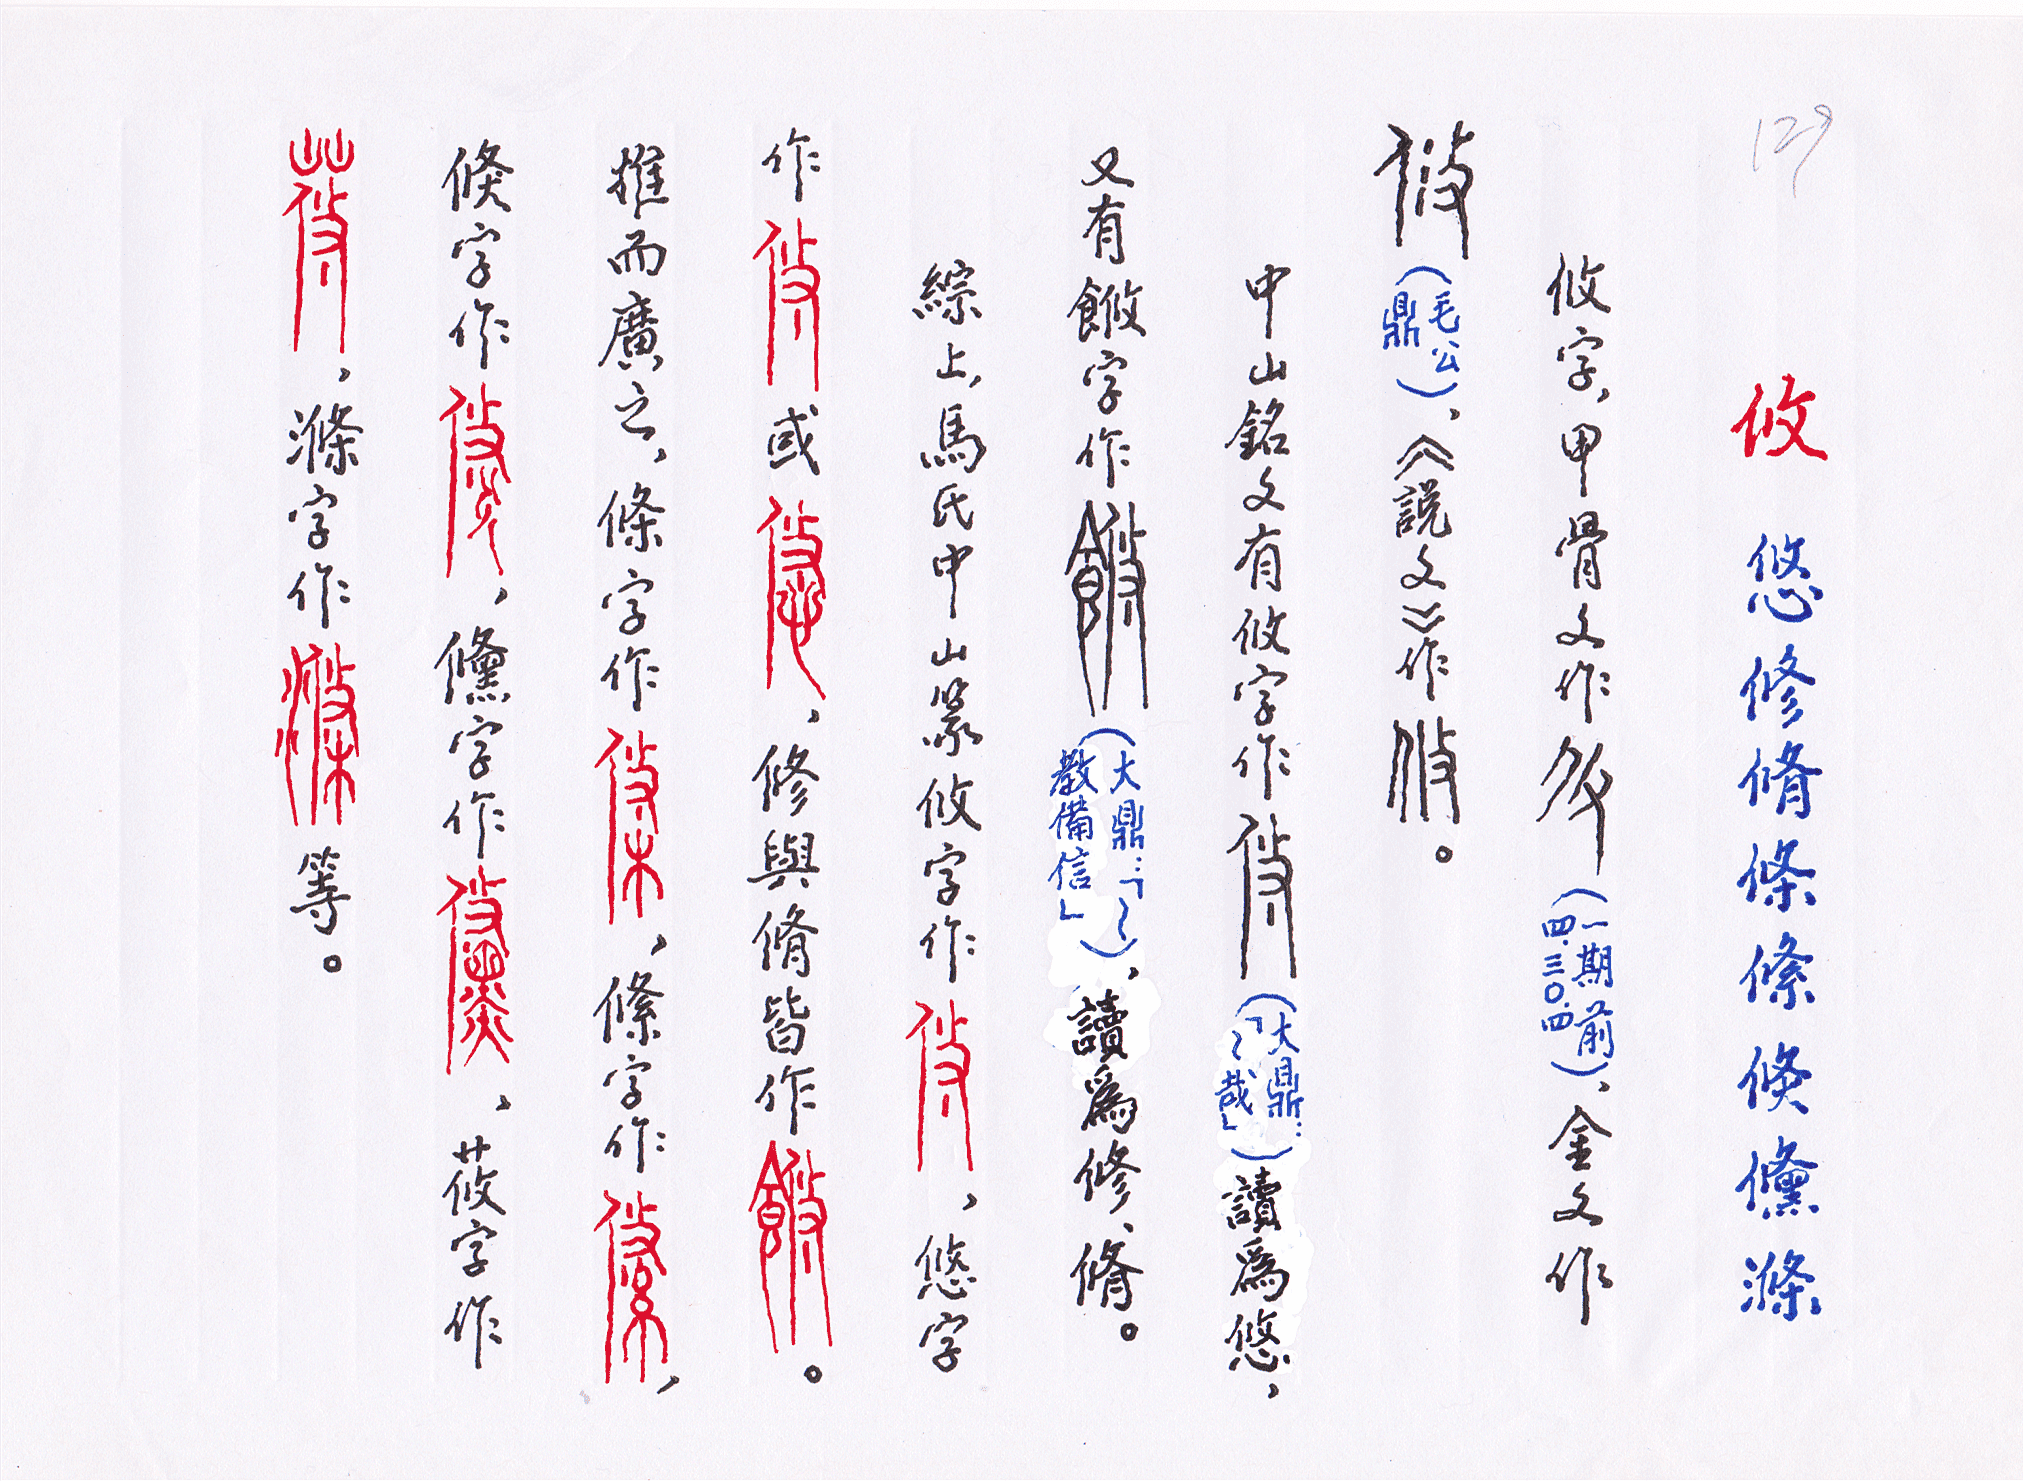 129
攸 悠修脩條絛倏儵滌
攸字，甲骨文作（一期前四.三〇.四）、金文作
（毛公鼎），《說文》作。
中山銘文有攸字作（大鼎：「〻哉」）讀爲悠，
又有䬕字作（大鼎：「〻教備信」），讀爲修、脩。
綜上，馬氏中山篆攸字作，悠字
作或，修與脩皆作。
推而廣之，條字作，絛字作，
倏字作，儵字作，莜字作
，滌字作等。